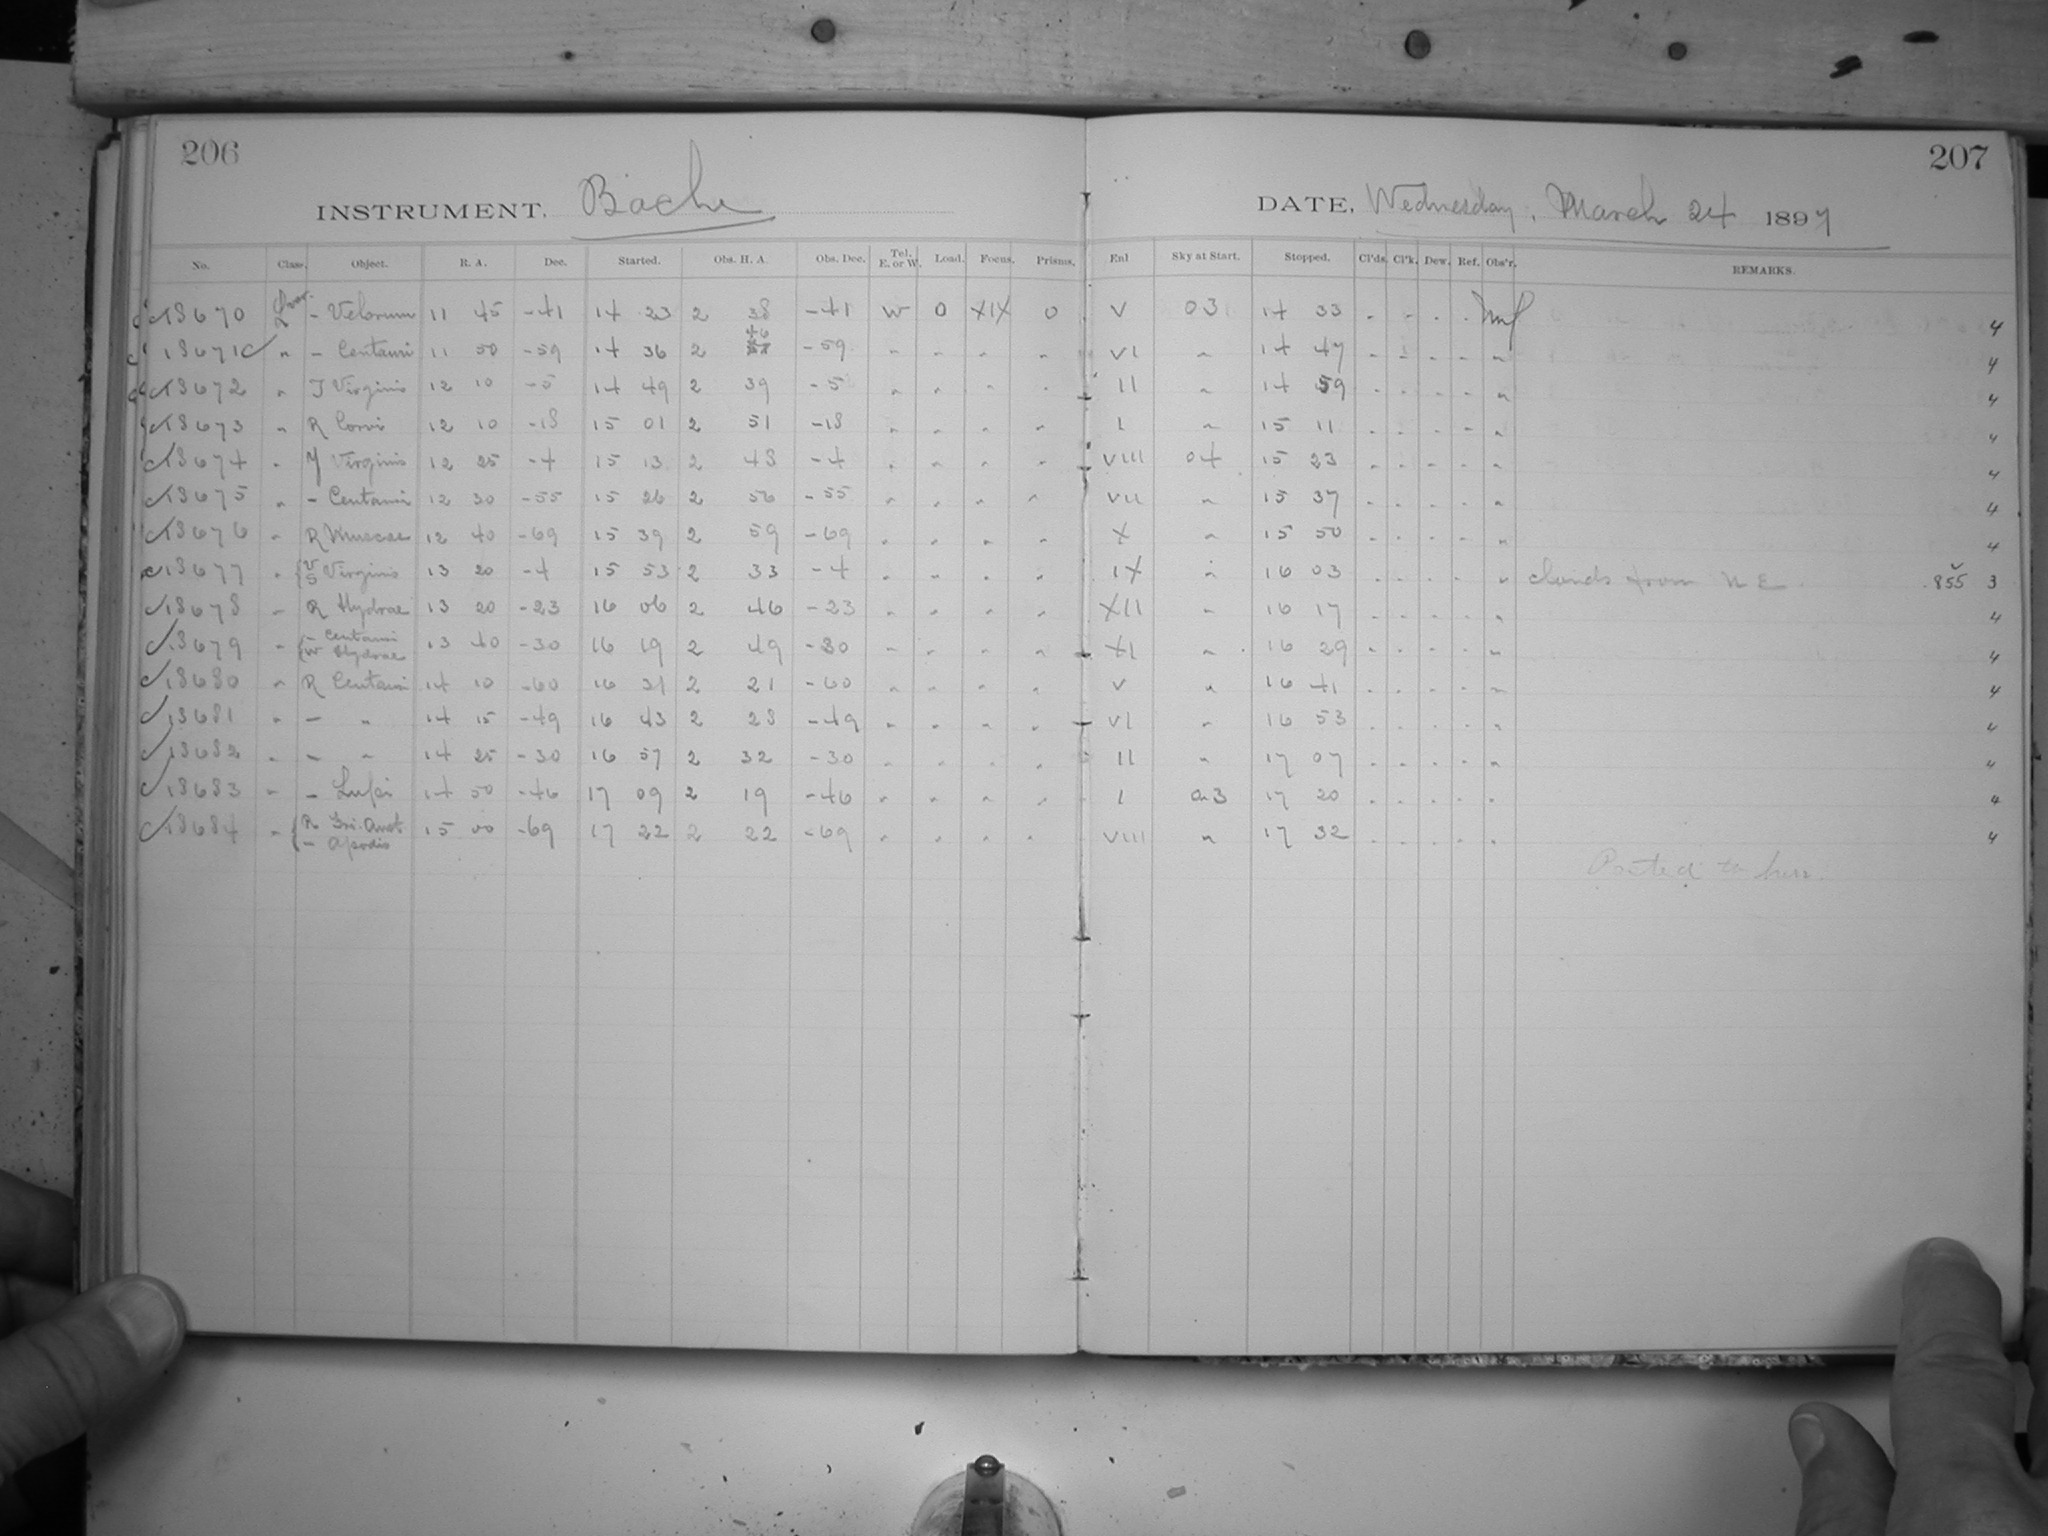 206
207
INSTRUMENT, Bache
DATE, Wednesday, March 24 1897
No. Class. Object. R. A. Dec. Started. Obs. H. A. Obs. Dec. Tel. E. or W. Load. Focus. Prisms. Enl Sky at Start. Stopped. Cl'ds. Cl'k. Dew. Ref. Obs'r. REMARKS.
18670 - Velorum 11 45 -41 14 23 2 38 -41 W 0 XIX 0 V 03 14 33 4
18671 " - Centauri 11 50 -59 14 36 2 46 -59 " " " " VI " 14 47 " 4
18672 " T Virginis 12 10 -5 14 49 2 39 -5 " " " " II " 14 59 " 4
18673 " R Corvi 12 10 -18 15 01 2 51 -18 " " " " I " 15 11 " 4
18674 " Y Virginis 12 25 -4 15 13 2 48 -4 " " " " VIII 04 15 23 " 4
18675 " - Centauri 12 30 -55 15 26 2 56 -55 " " " " VII " 15 37 " 4
18676 " R Muscae 12 40 -69 15 39 2 59 -69 " " " " X " 15 50 " 4
18677 " V S Virginis 13 20 -4 15 53 2 33 -4 " " " " IX " 16 03 " clouds from N E. 855 3
18678 " R Hydrae 13 20 -23 16 06 2 46 -23 " " " " XII " 16 17 " 4
18679 " - Centauri W Hydrae 13 40 -30 16 19 2 49 -30 " " " " XI " 16 29 " 4
18680 " R Centauri 14 10 -60 16 31 2 21 -60 " " " " V " 16 41 " 4
18681 " - " 14 15 -49 16 43 2 28 -49 " " " " VI " 16 53 " 4
18682 " - " 14 25 -30 16 57 2 32 -30 " " " " II " 17 07 " 4
18683 " - Lupi 14 50 -46 17 09 2 19 -46 " " " " I 03 17 20 " 4
18684 " R Tri. Aust - Apodis 15 00 -69 17 22 2 22 -69 " " " " VIII " 17 32 " 4
Posted to here.